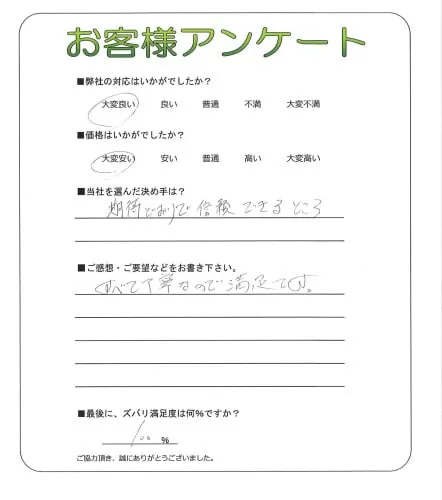 お客様アンケート
■弊社の対応はいかがでしたか？
大変良い 良い 普通 不満 大変不満
■価格はいかがでしたか？
大変安い 安い 普通 高い 大変高い
■当社を選んだ決め手は？
期待どおりで信頼できるところ
■ご感想・ご要望などをお書き下さい。
すべて丁寧なので満足です。
■最後に、ズバリ満足度は何％ですか？
100 ％
ご協力頂き、誠にありがとうございました。